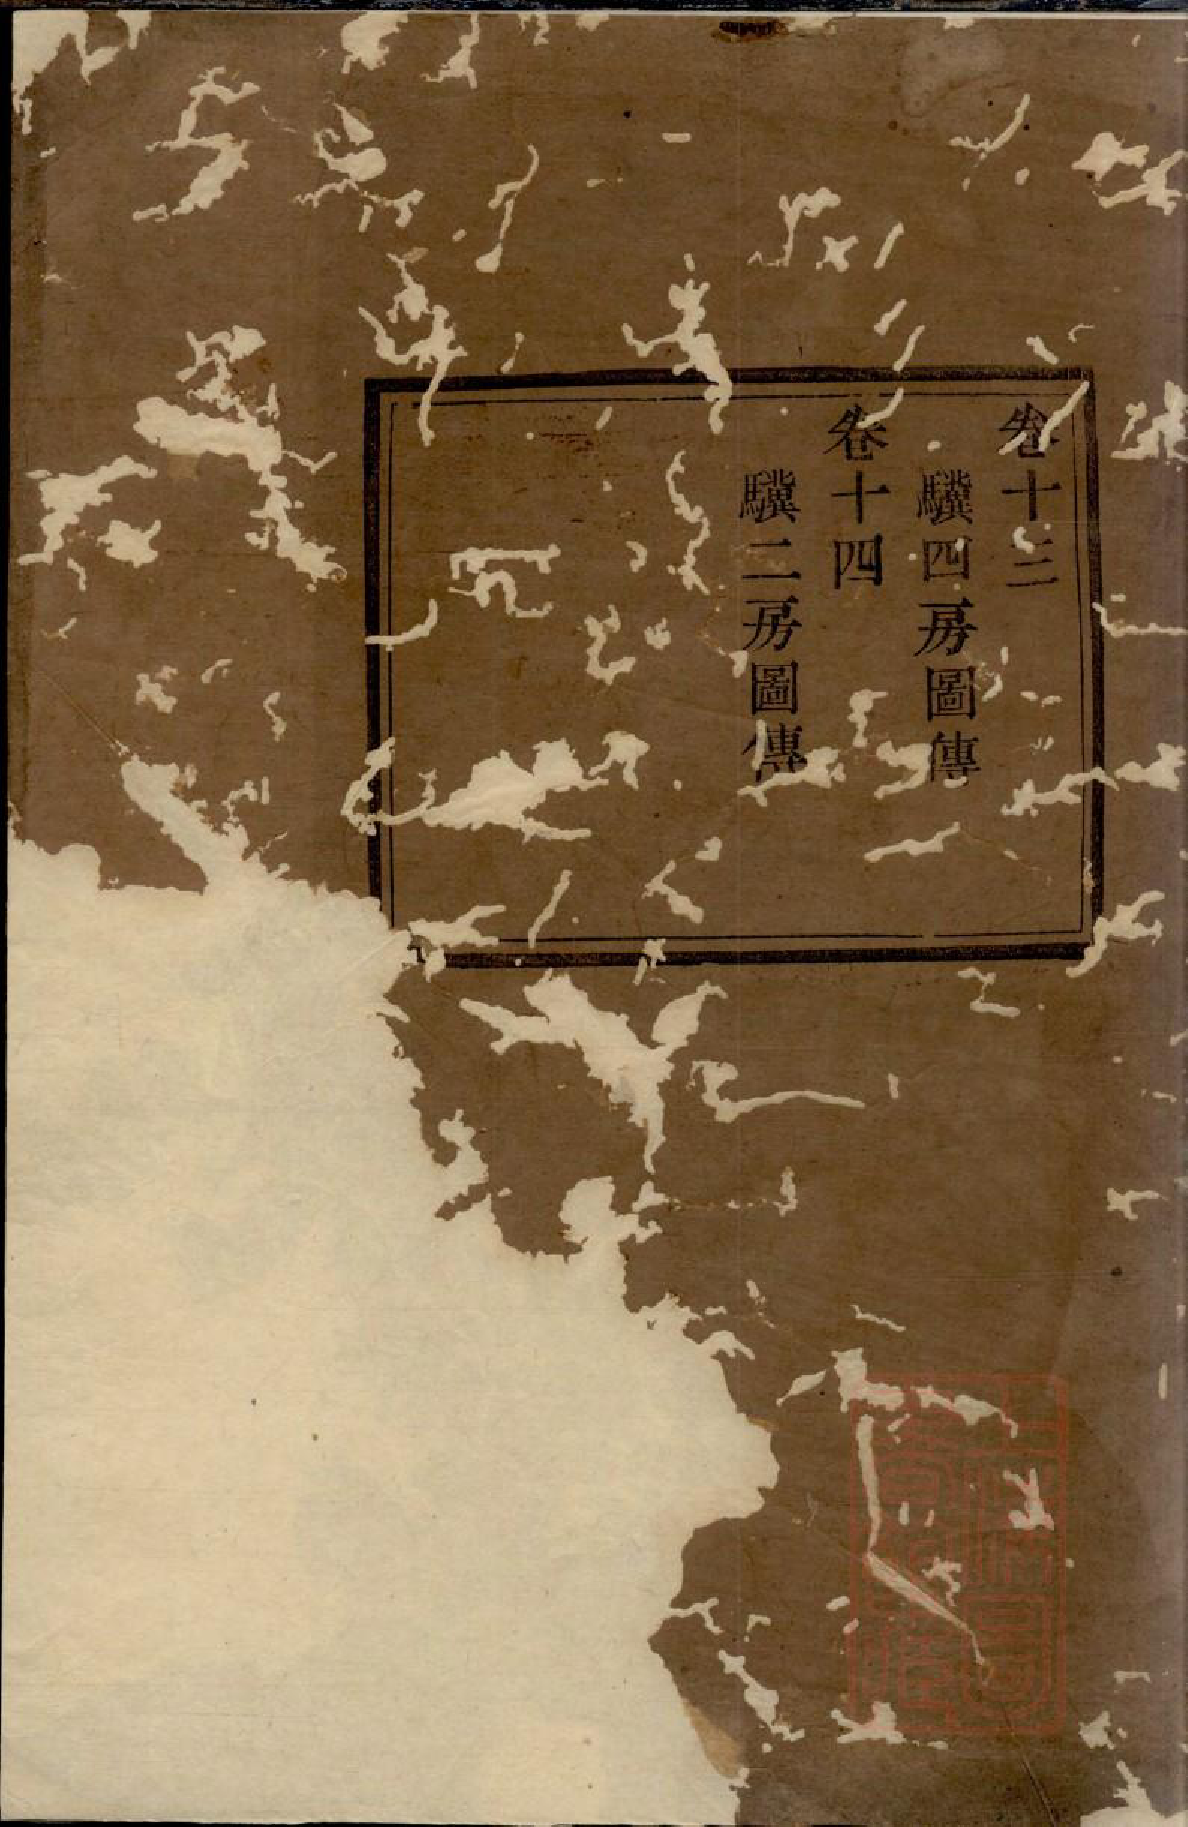 卷十三
驥四房圖傳
卷十四
驥二房圖傳